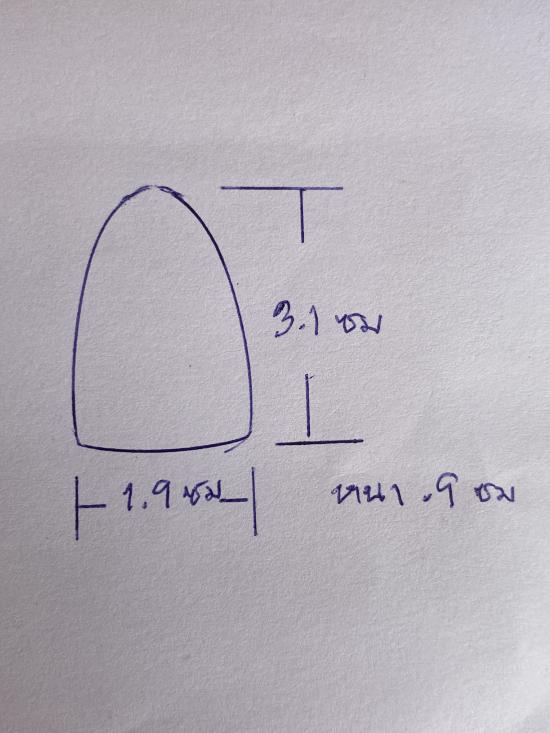 3.1 ซม
1.9 ซม
หนา .9 ซม